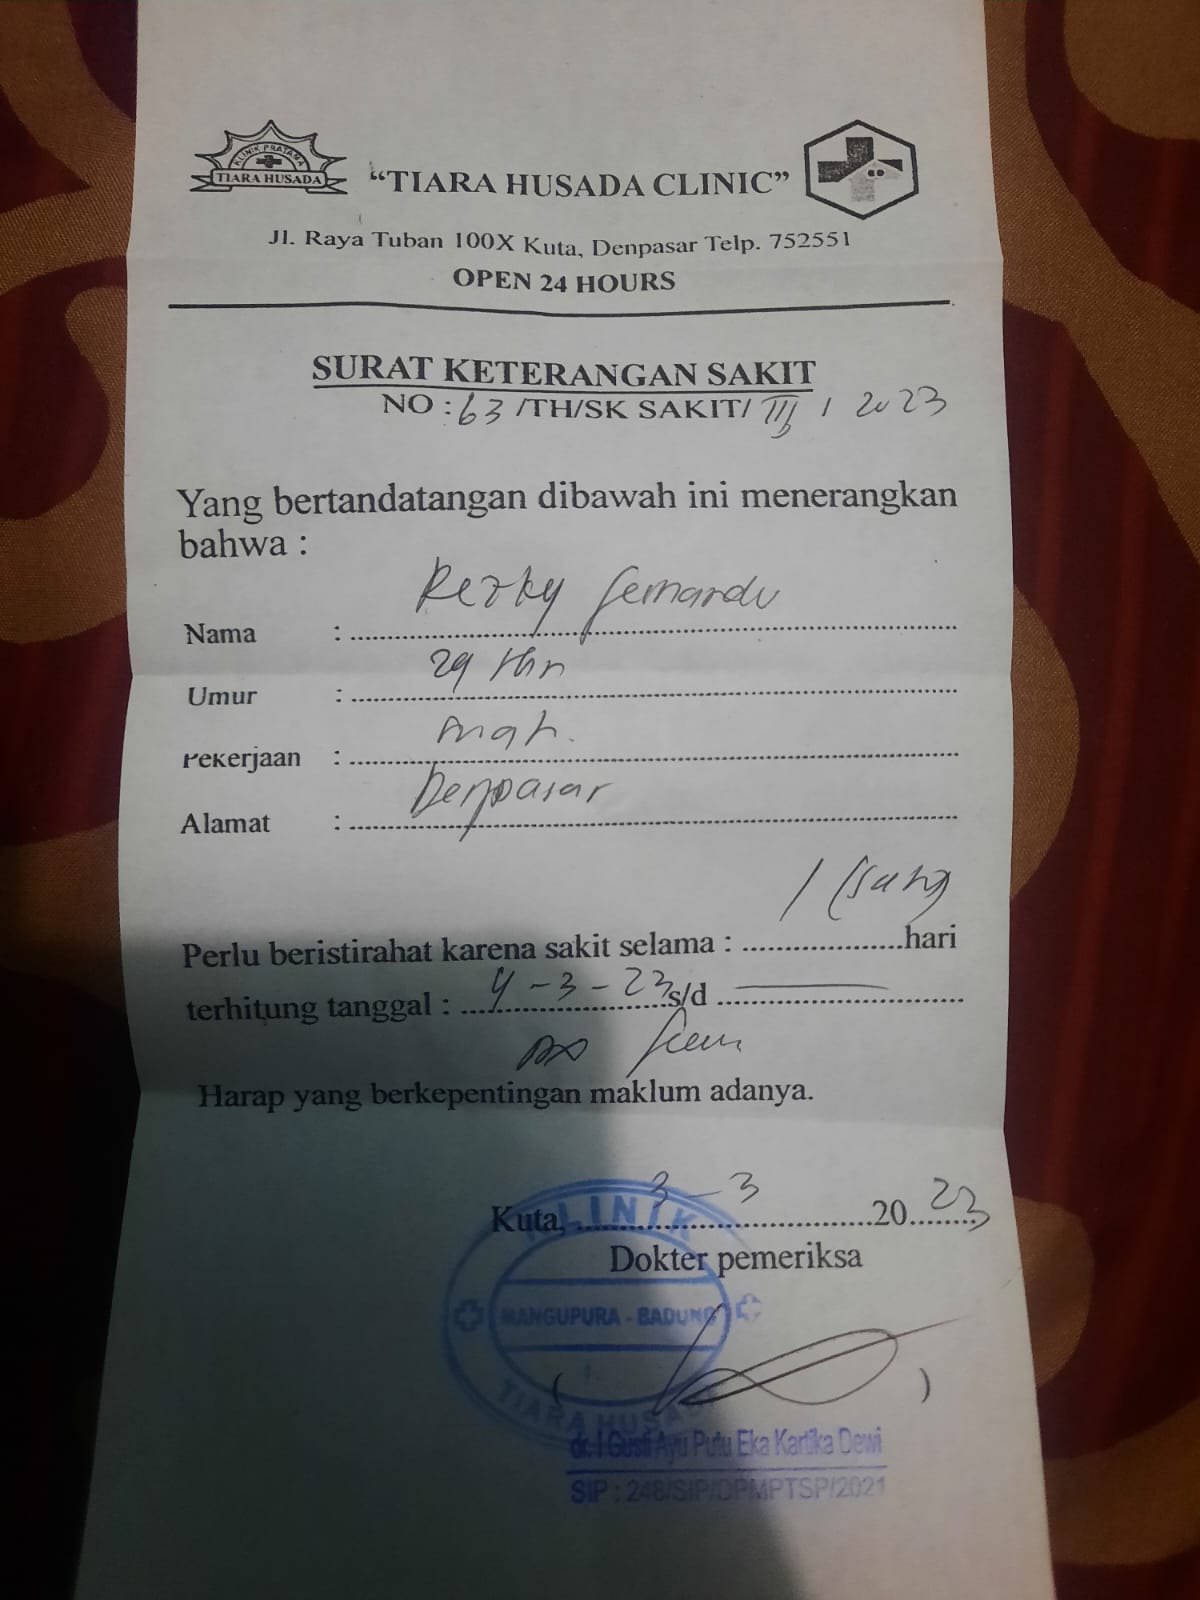 KLINIK PRATAMA
TIARA HUSADA
“TIARA HUSADA CLINIC”
Jl. Raya Tuban 100X Kuta, Denpasar Telp. 752551
OPEN 24 HOURS
SURAT KETERANGAN SAKIT
NO : 63 /TH/SK SAKIT/ III / 2023
Yang bertandatangan dibawah ini menerangkan
bahwa :
Nama : Rezky Fernando
Umur : 29 thn
Pekerjaan :
Alamat : Denpasar
Perlu beristirahat karena sakit selama : 1 (satu) hari
terhitung tanggal : 4 - 3 - 23 s/d
Harap yang berkepentingan maklum adanya.
Kuta, 3 - 3 2023
Dokter pemeriksa
KLINIK
MANGUPURA - BADUNG
TIARA HUSADA
( )
dr. I Gusti Ayu Putu Eka Kartika Dewi
SIP : 248/SIP/DPMPTSP/2021